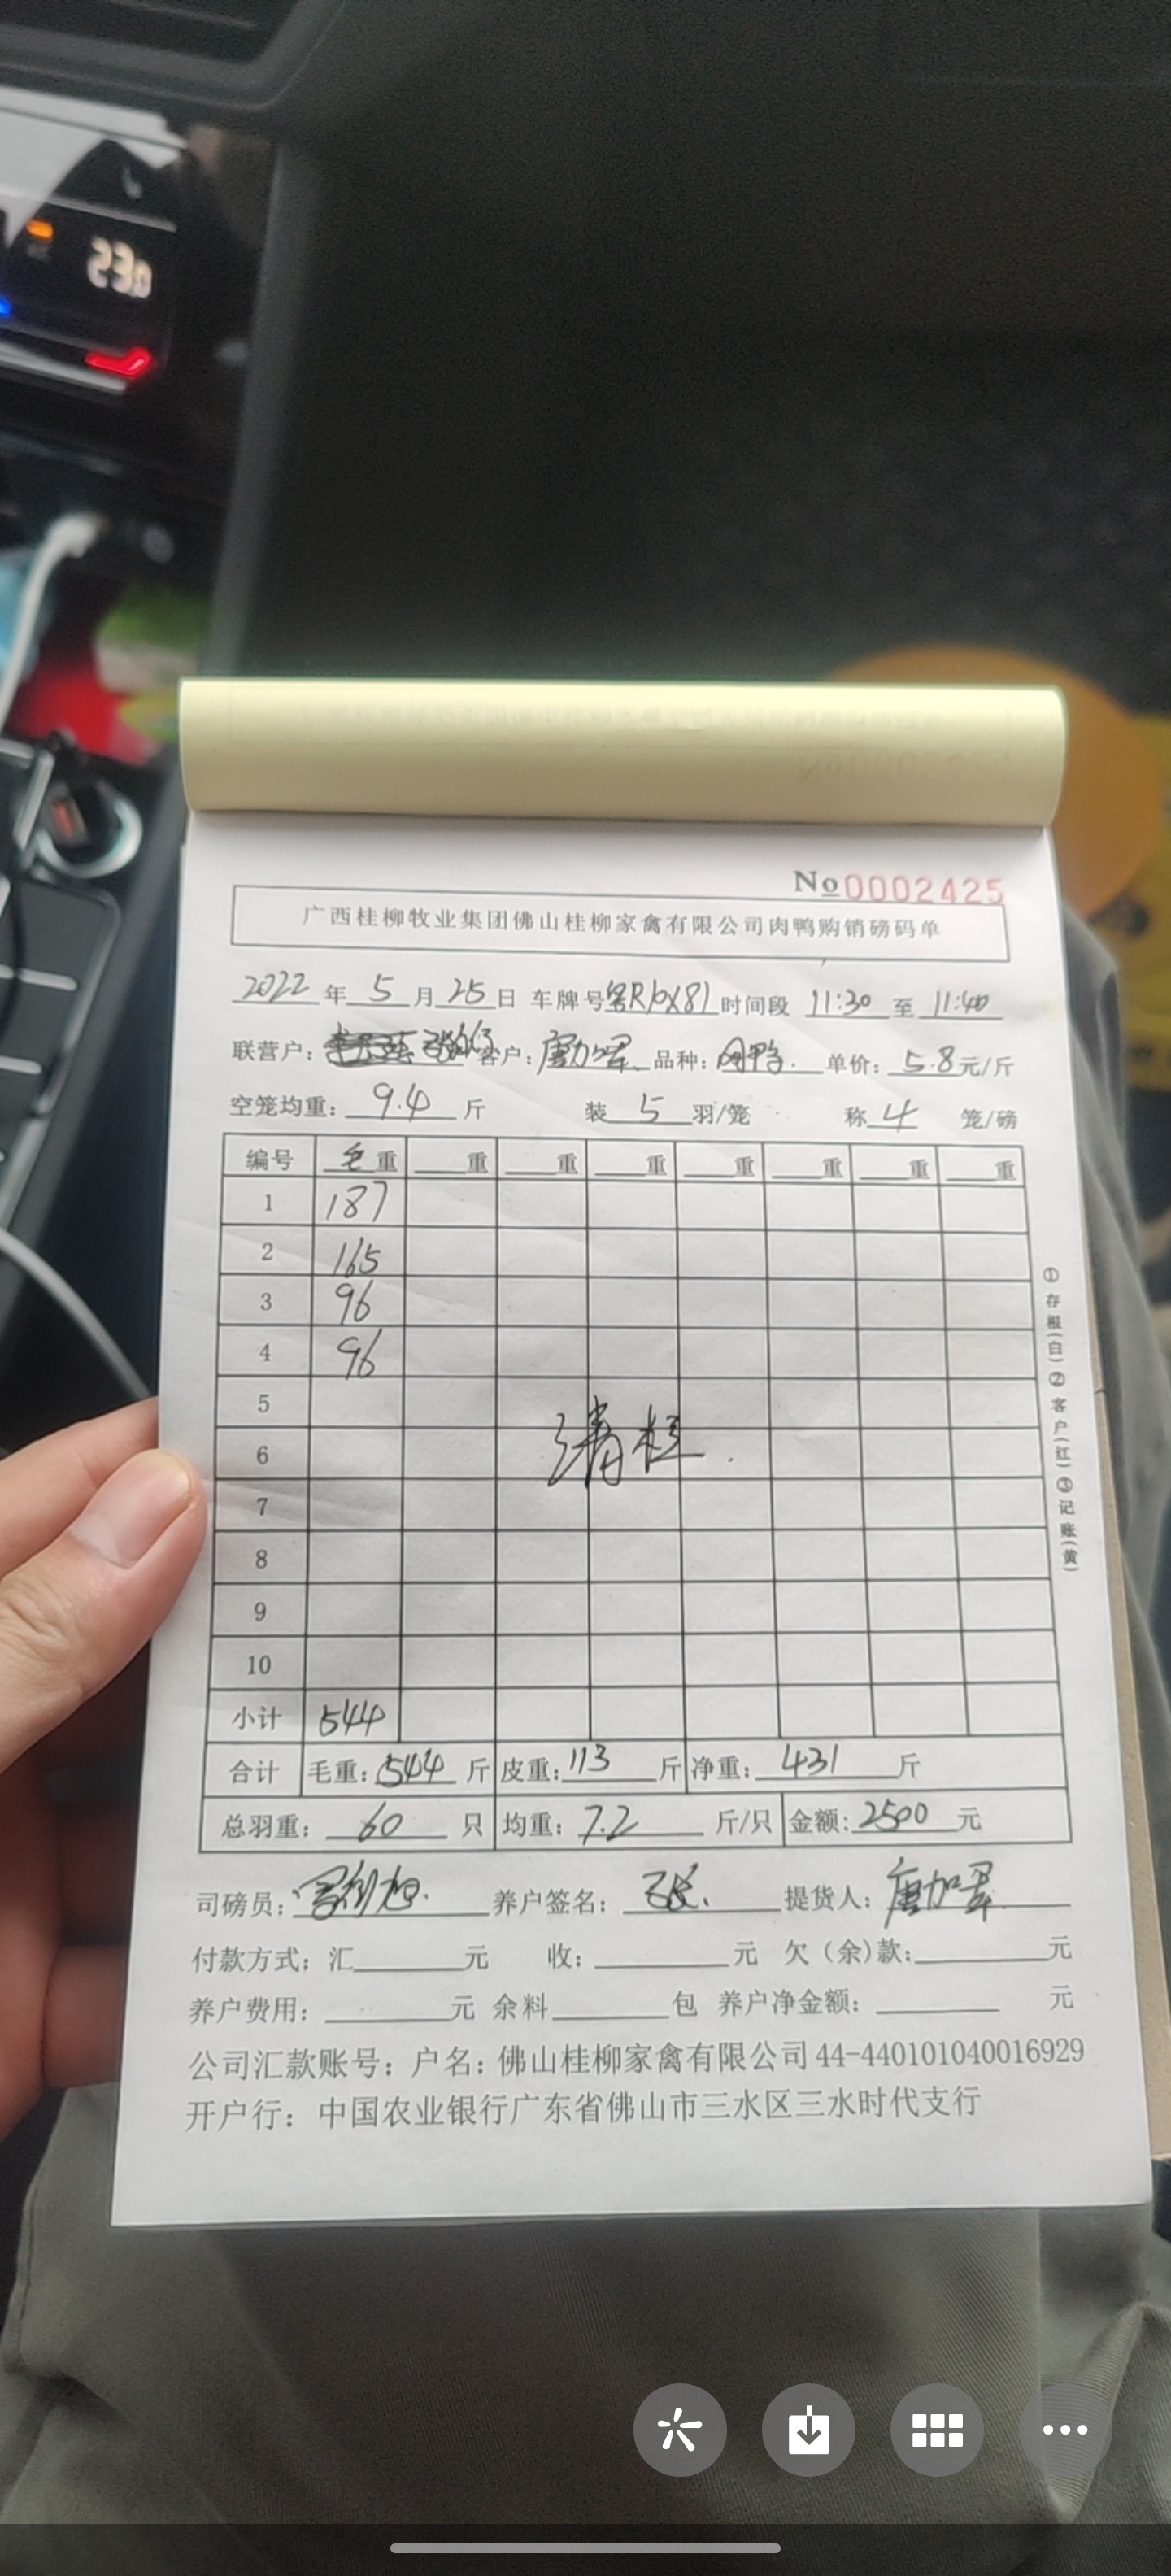 23.0
No 0002425
广西桂柳牧业集团佛山桂柳家禽有限公司肉鸭购销磅码单
2022年5月25日 车牌号 时间段 11:30 至 11:40
联营户: 客户:唐加 品种:肉鸭. 单价:5.8元/斤
空笼均重:9.4斤 装5羽/笼 称4笼/磅
编号 毛重 重 重 重 重 重 重 重
1 187
2 165
3 96
4 96
5
6 清栏.
7
8
9
10
小计 544
合计 毛重:544斤 皮重:113斤 净重:431斤
总羽重:60只 均重:7.2斤/只 金额:2500元
司磅员: 养户签名: 提货人:唐加
付款方式:汇 元 收: 元 欠(余)款: 元
养户费用: 元 余料 包 养户净金额: 元
公司汇款账号:户名:佛山桂柳家禽有限公司44-440101040016929
开户行:中国农业银行广东省佛山市三水区三水时代支行
①存根(白)②客户(红)③记账(黄)